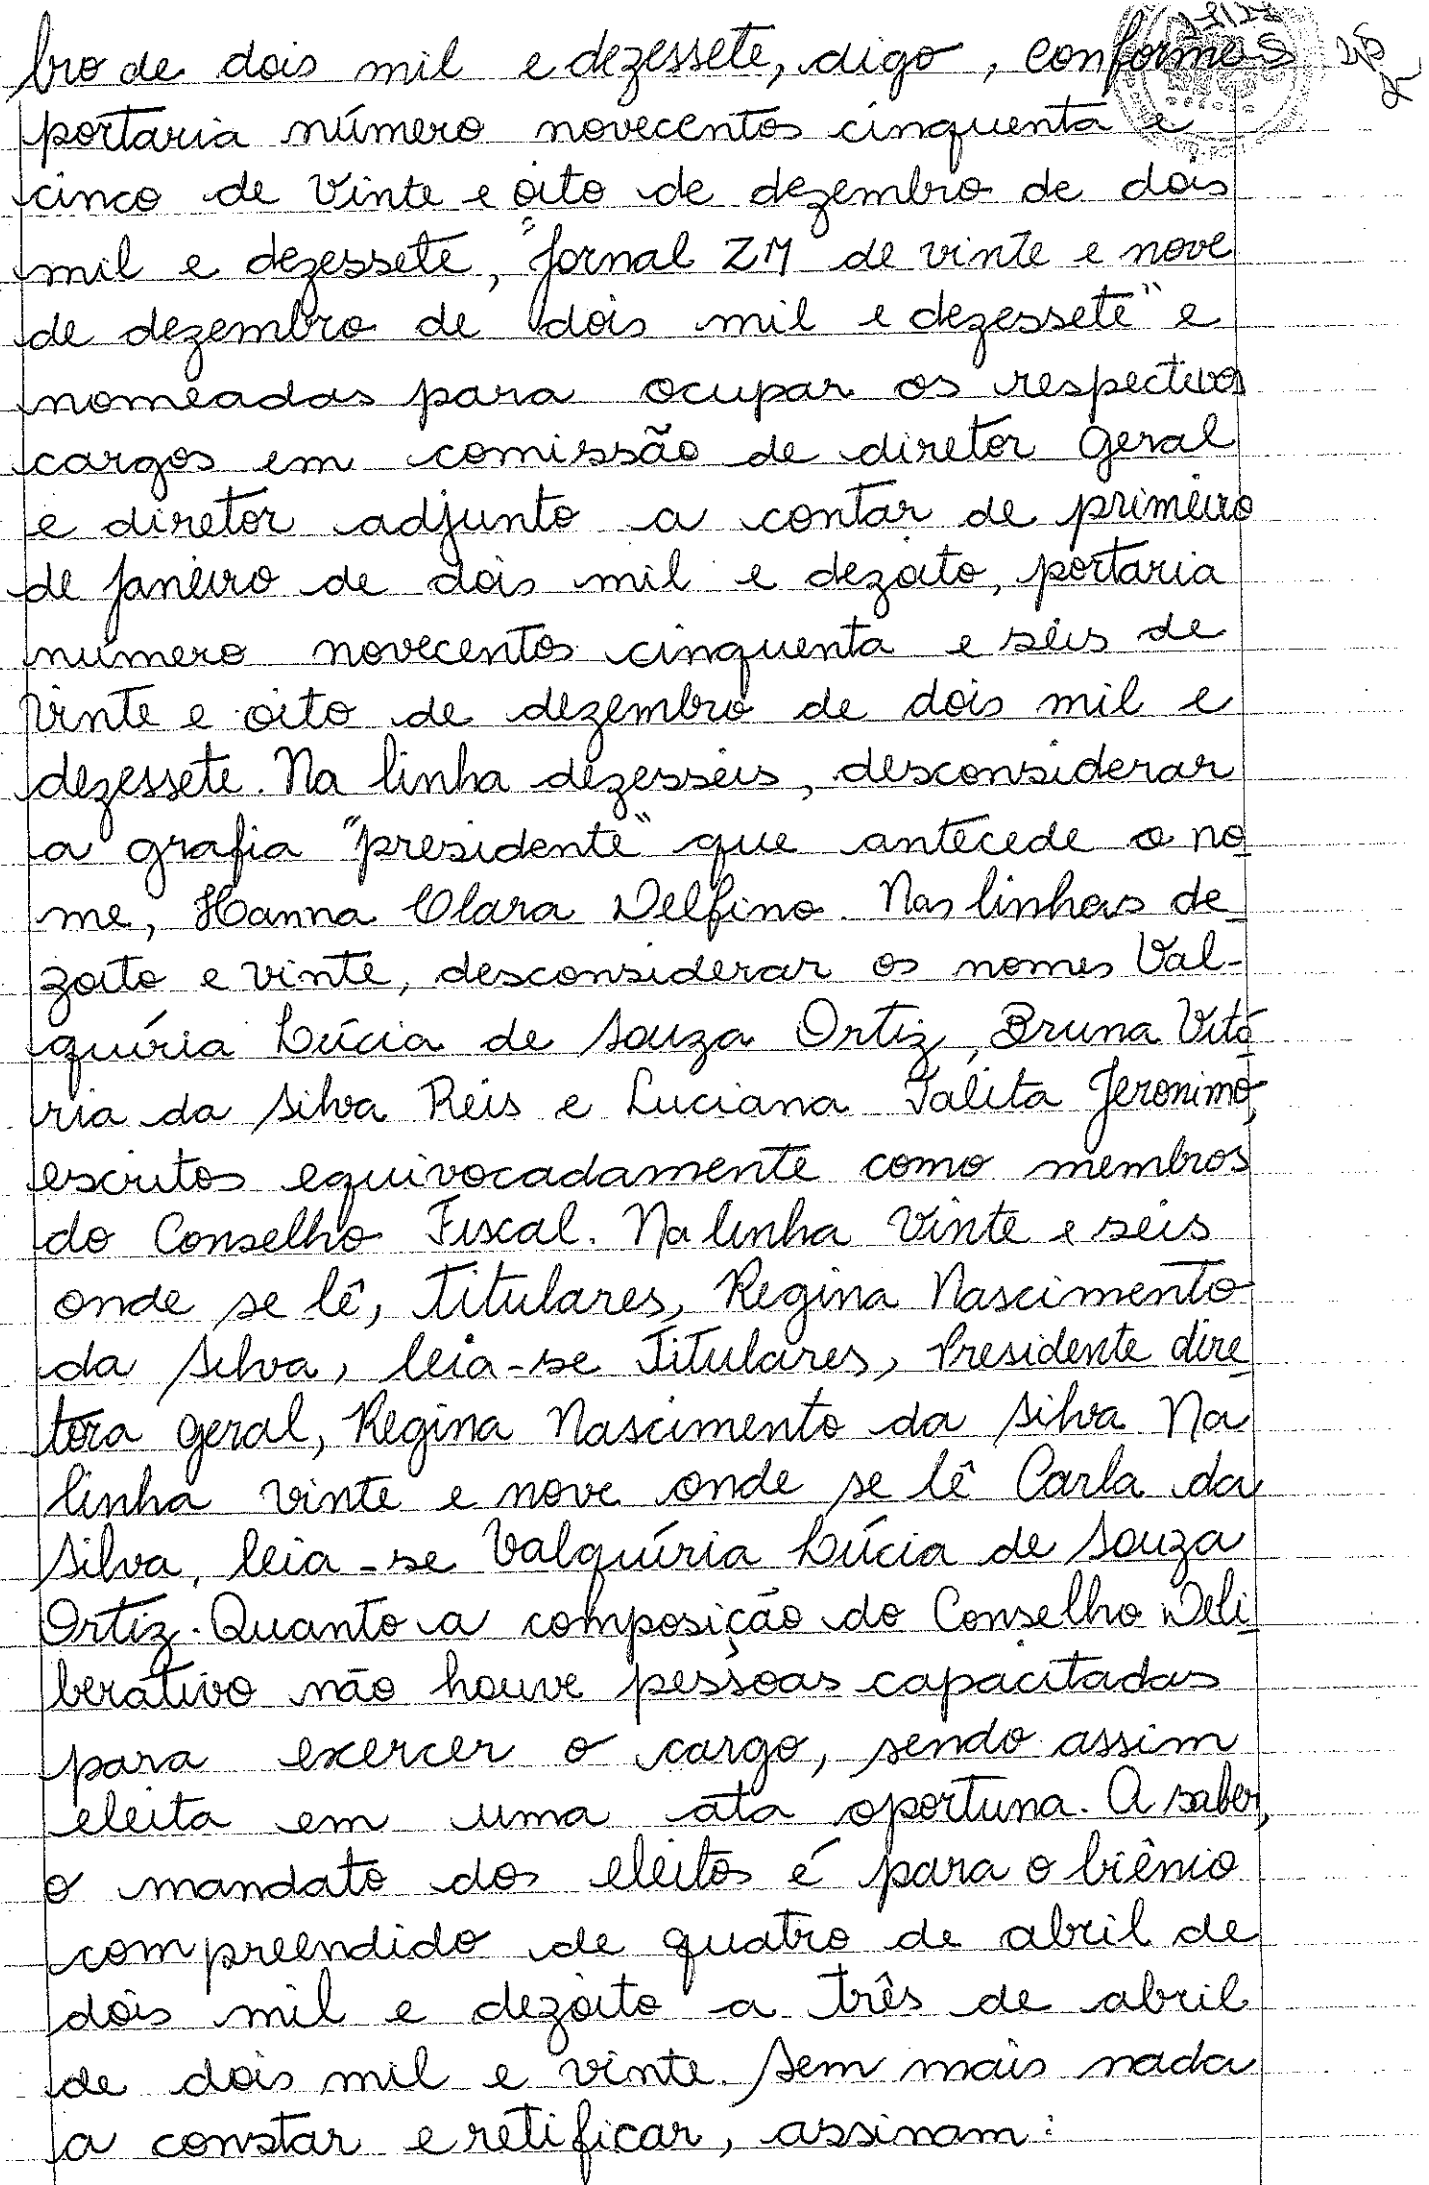 bro de dois mil e dezessete, digo, conforme
portaria número novecentos cinquenta e
cinco de vinte e oito de dezembro de dois
mil e dezessete, "Jornal ZM de vinte e nove
de dezembro de dois mil e dezessete" e
nomeadas para ocupar os respectivos
cargos em comissão de diretor geral
e diretor adjunto a contar de primeiro
de Janeiro de dois mil e dezoito, portaria
número novecentos cinquenta e seis de
vinte e oito de dezembro de dois mil e
dezessete. Na linha dezesseis, desconsiderar
a grafia "presidente" que antecede o no-
me, Hanna Clara Delfino. Nas linhas de-
zoito e vinte, desconsiderar os nomes Val-
quíria Lúcia de Souza Ortiz, Bruna Vitó-
ria da Silva Reis e Luciana Talita Jeronimo,
escritos equivocadamente como membros
do Conselho Fiscal. Na linha vinte e seis
onde se lê, Titulares, Regina Nascimento
da Silva, leia-se Titulares, Presidente dire-
tora geral, Regina Nascimento da Silva Na
linha vinte e nove onde se lê Carla da
Silva, leia-se Valquíria Lúcia de Souza
Ortiz. Quanto a composição do Conselho Deli-
berativo não houve pessoas capacitadas
para exercer o cargo, sendo assim
eleita em uma ata oportuna. A saber,
o mandato dos eleitos é para o biênio
compreendido de quatro de abril de
dois mil e dezoito a três de abril
de dois mil e vinte. Sem mais nada
a constar e retificar, assinam: